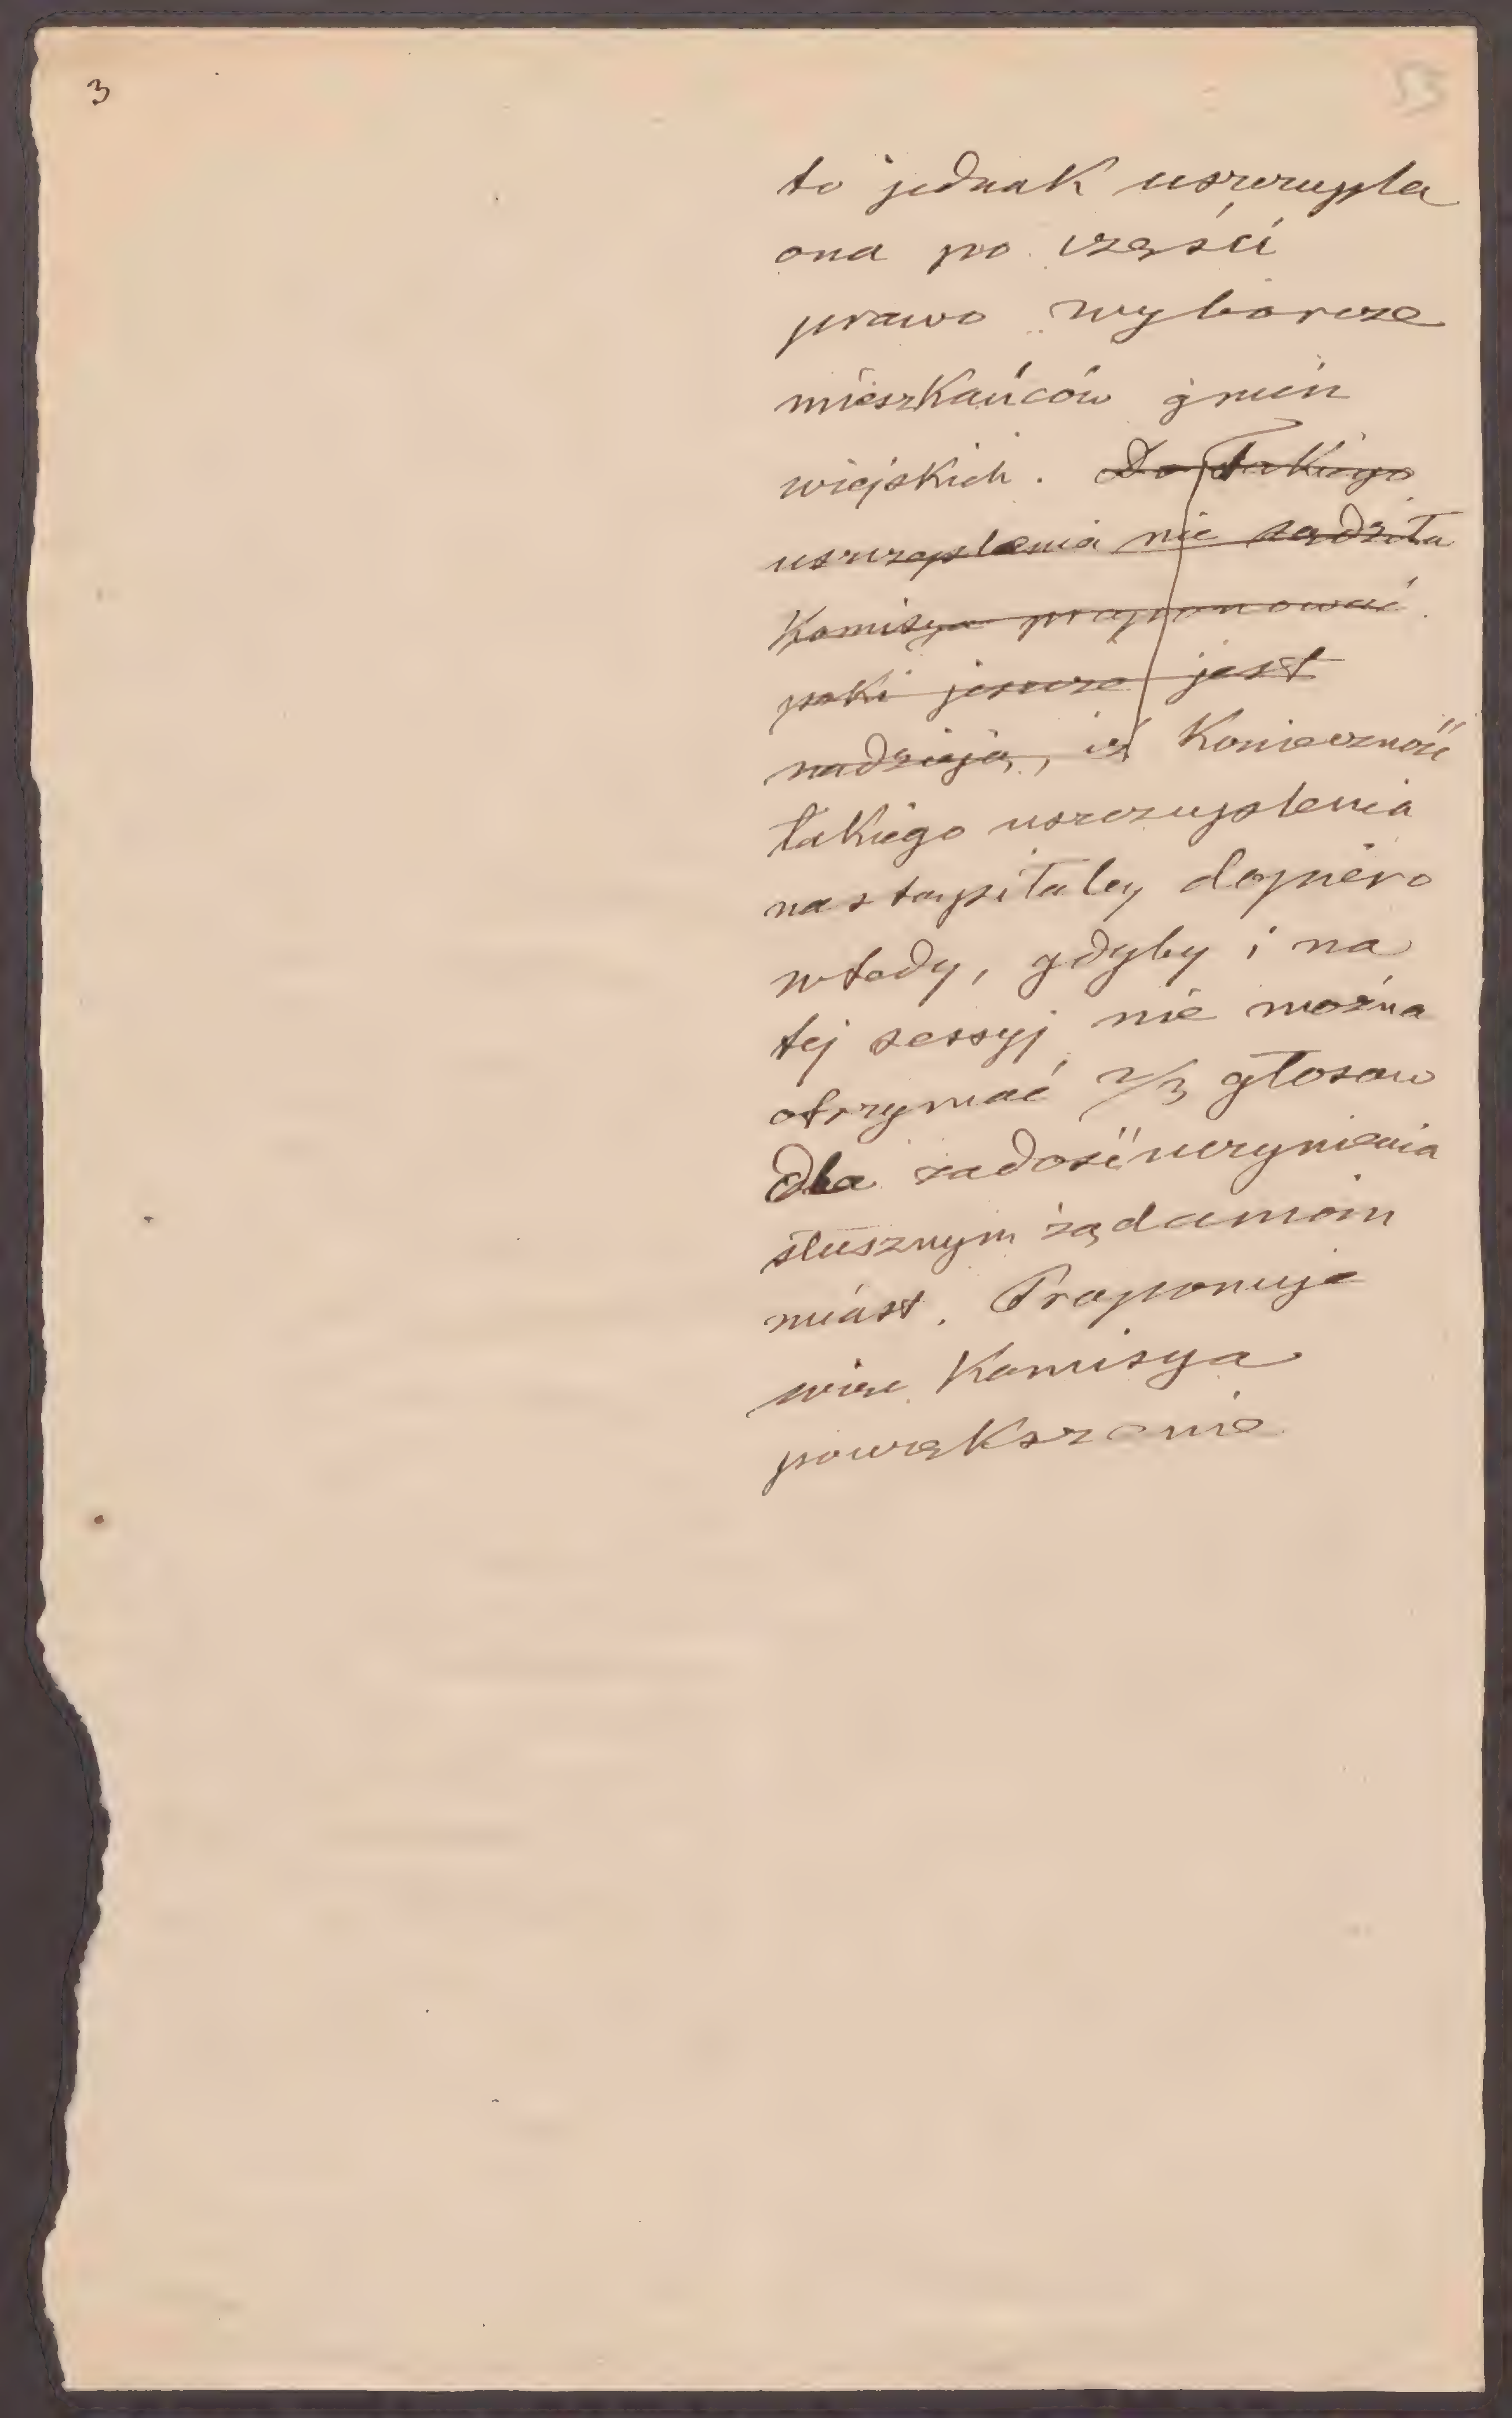 3
53
to jednak uszczupla
ona po części
prawo wyborcze
mieszkańców gmin
wiejskich. Do takiego
uszczuplenia nie sądziła
Komisya proponować
póki jeszcze jest
nadzieja, iż Konieczność
takiego uszczuplenia
nastąpiłaby dopiero
wtedy, gdyby i na
tej sessyj nie można
otrzymać 2/3 głosow
dla zadośćuczynienia
słusznym żądaniom
miast. Proponuje
więc Komisya
powiększenie